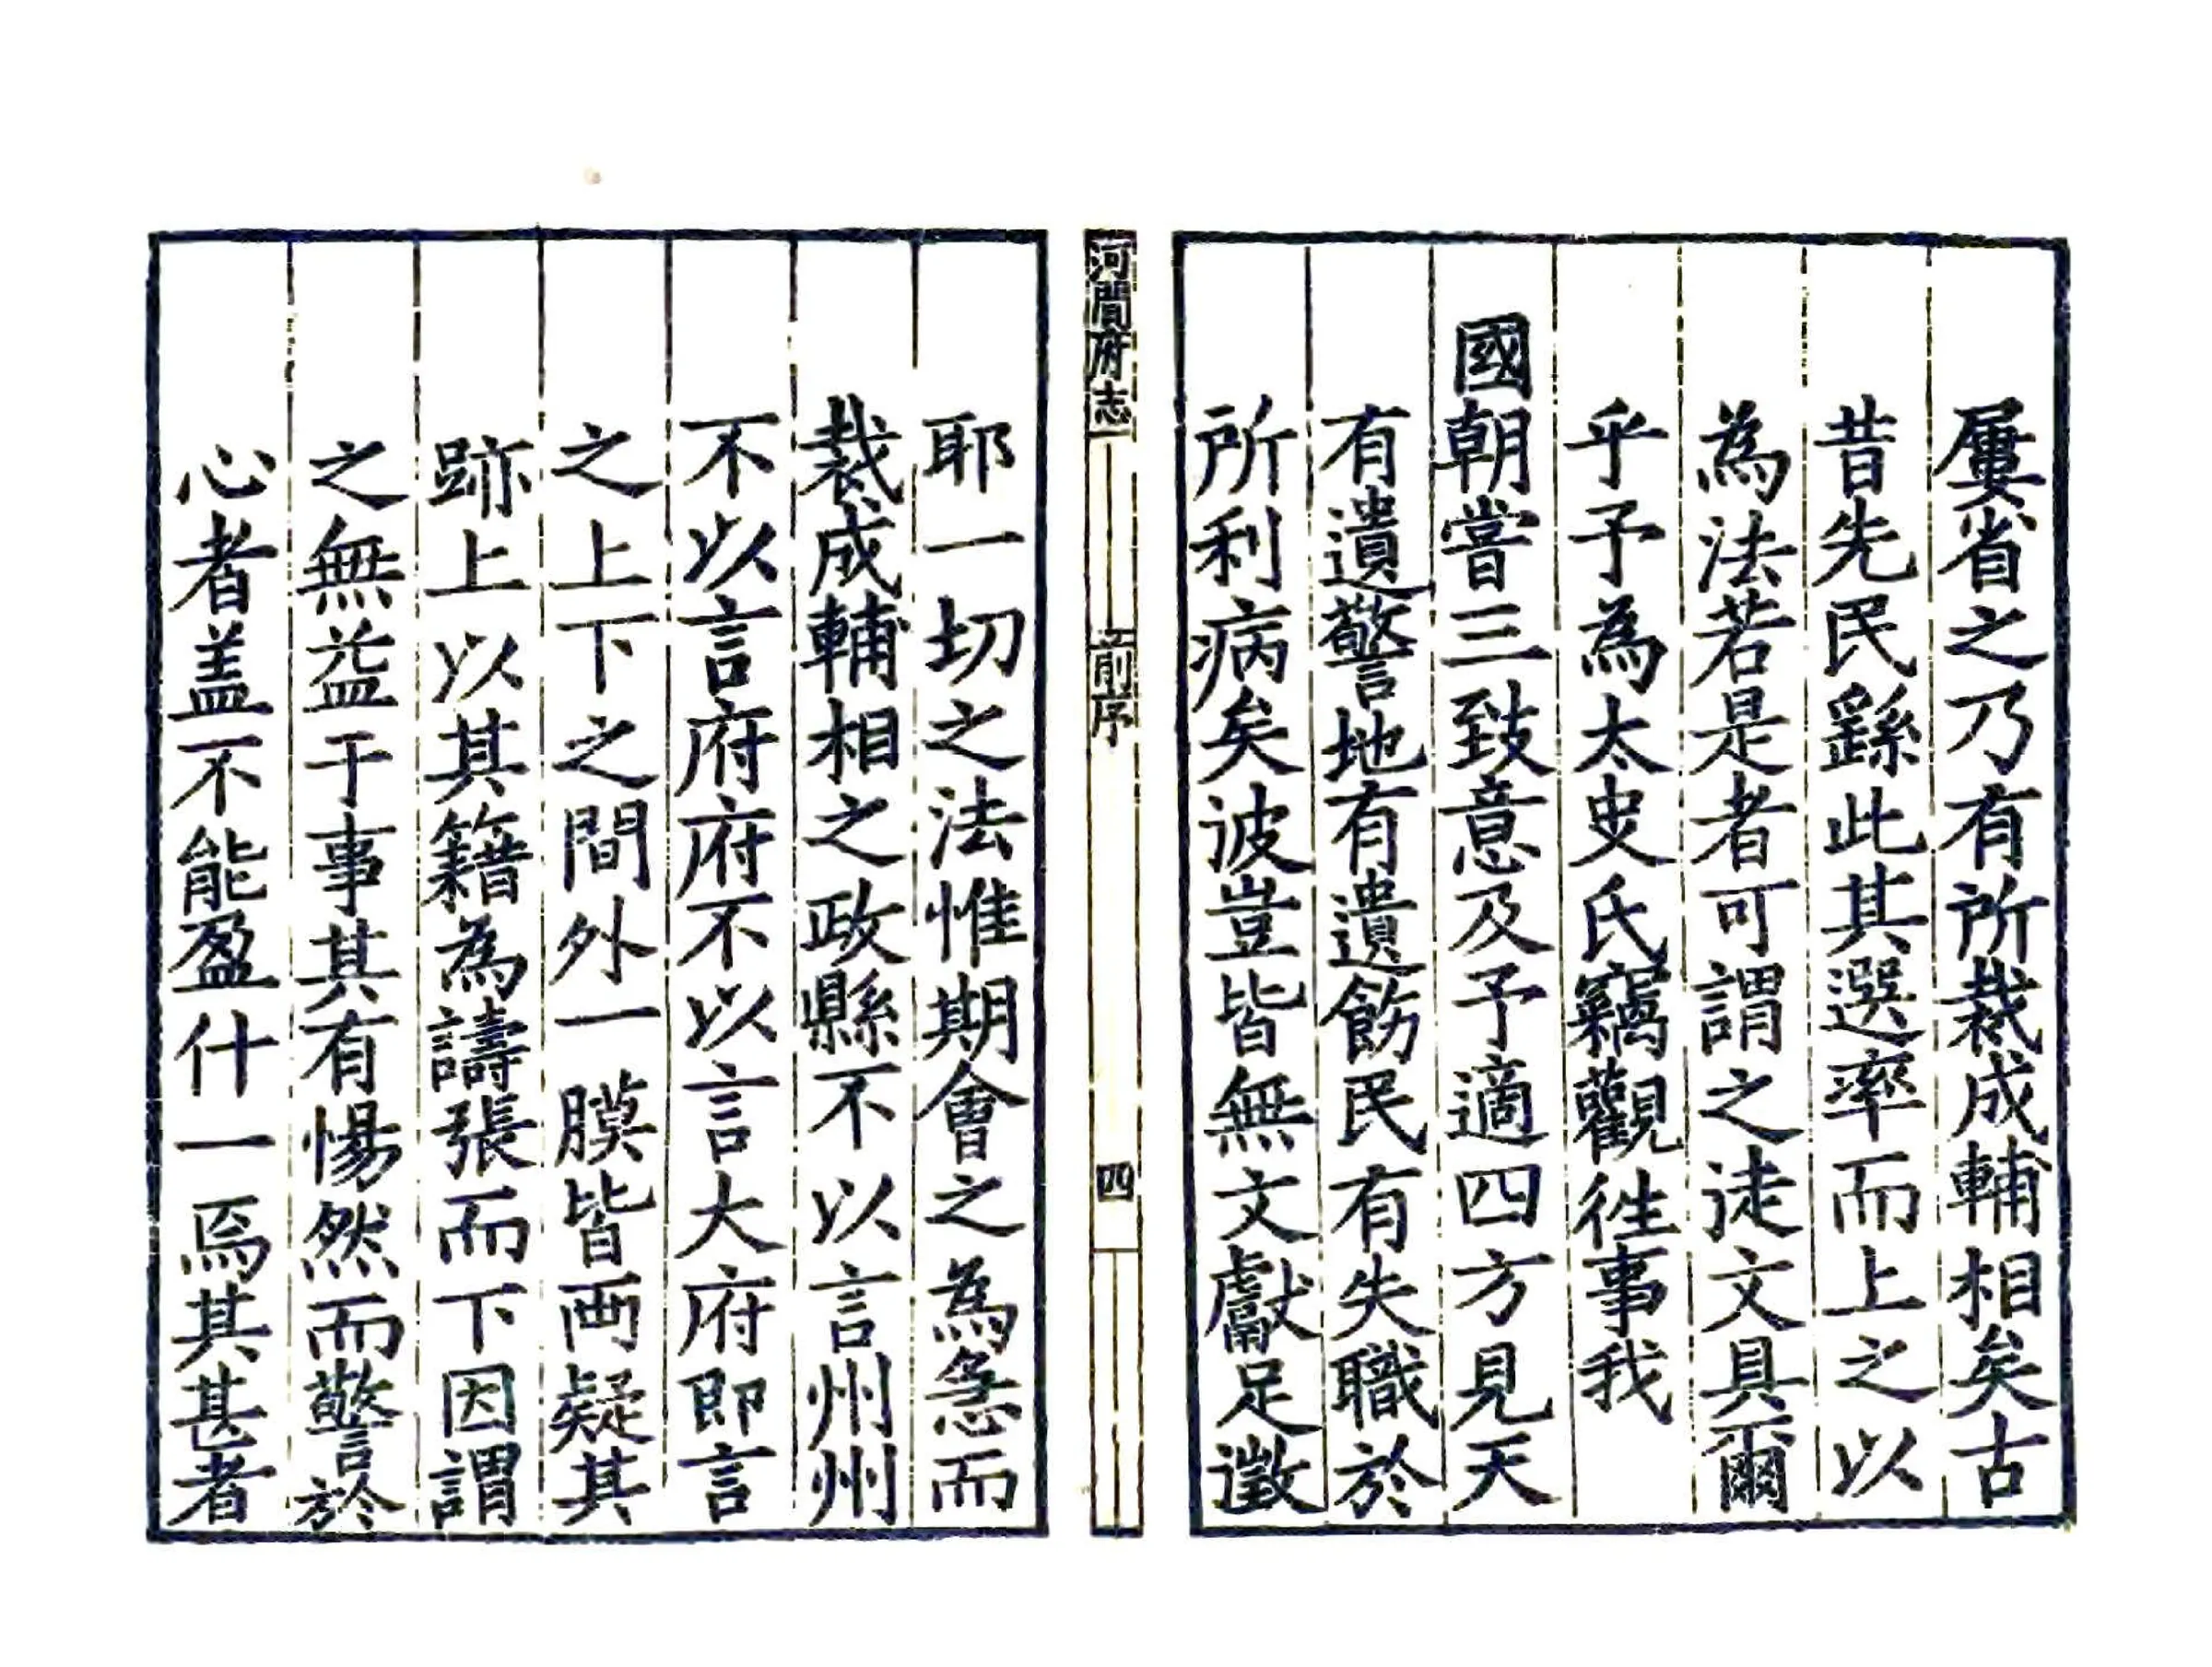 屢省之乃有所裁成輔相矣古
昔先民繇此其選率而上之以
為法若是者可謂之徒文具爾
乎予為太史氏竊觀徃事我
國朝嘗三致意及予適四方見天
有遺警地有遺飭民有失職於
所利病矣波豈皆無文獻足徵
河間府志
前序
四
耶一切之法惟期會之為急而
裁成輔相之政縣不以言州州
不以言府府不以言大府即言
之上下之間外一膜皆両疑其
跡上以其籍為譸張而下因謂
之無益于事其有惕然而警於
心者盖不能盈什一焉其甚者